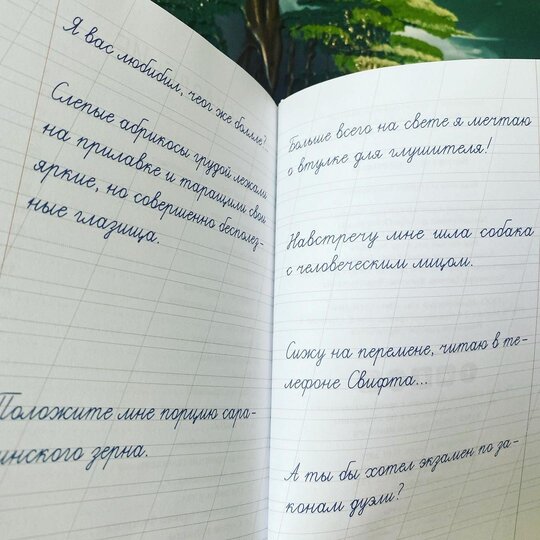 Я вас любибил, чеог же боллле?
Слепые абрикосы грудой лежали
на прилавке и таращили свои
яркие, но совершенно бесполез-
ные глазища.
Положите мне порцию сара-
инского зерна.
Больше всего на свете я мечтаю
о втулке для глушителя!
Навстречу мне шла собака
с человеческим лицом.
Сижу на перемене, читаю в те-
лефоне Свифта...
А ты бы хотел экзамен по за-
конам дуэли?